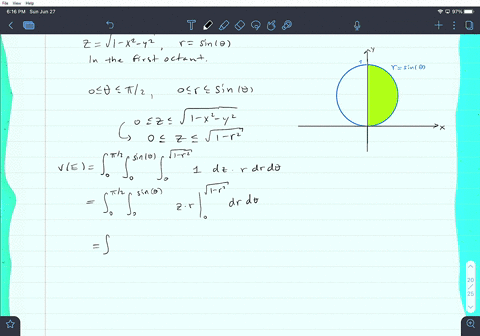 Preview File Edit View Go Tools Window Help
6:16 PM Sun Jun 27
97%
z = √1-x²-y², r = sin(θ)
In the first octant.
0≤θ≤π/2, 0≤r≤sin(θ)
0 ≤ z ≤ √1-x²-y²
↳ 0 ≤ z ≤ √1-r²
V(E) = ∫₀^π/2 ∫₀^sin(θ) ∫₀^√1-r² 1 dz · r dr dθ
= ∫₀^π/2 ∫₀^sin(θ) z·r |₀^√1-r² dr dθ
= ∫
y
1
r = sin(θ)
x
20
25